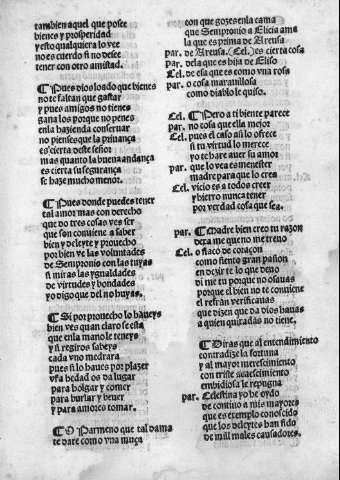 tambien aquel que possee
bienes y prosperidad
y esto qualquiera lo vee
no es cuerdo si no desee
tener con otro amistad.
¶ Pues dios loado que bienes
no te faltan que gastar
y pues amigos no tienes
gana los porque no penes
en la hazienda conseruar
no pienses que la priuança
es cierta deste señor
mas quanto la buena andança
es cierta su segurança
se haze mucho menor.
¶ Pues donde puedes tener
tal amor mas con derecho
que do tres cosas ves ser
que son conuiene a saber
bien y deleyte y prouecho
por bien ve las voluntades
de Sempronio con las tuyas
si miras las ygualdades
de virtudes y bondades
yo digo que del no huyas.
¶ Si por prouecho lo haueys
bien ves quan claro se esta
que en la mano le teneys
y si regiros sabeys
cada vno medrara
pues si lo haues por plazer
vra hedad os da lugar
para holgar y comer
para burlar y beuer
y para amores tomar.
¶ O Parmeno que tal dama
te dare como vna muça
con que gozes en la cama
que Sempronio a Elicia ama
la que es prima de Areusa
par. de Areusa. Cel. es cierta cosa
par. dela que es hija de Eliso
Cel. de esa que es como vna rosa
par. o cosa marauillosa
como diablo le quiso.
Cel. ¶ Pero a ti biente parece
par. no cosa que ella mejor
Cel. pues el caso asi lo ofrece
si tu virtud lo merece
yo te hare auer su amor
par. que lo vea es menester
madre para que lo crea
Cel. vicio es a todos creer
y hierro nunca tener
por verdad cosa que sea.
par. ¶ Madre bien creo tu razon
dexa me que no me treno
Cel. o flaco de coraçon
como siento gran passion
en dezir te lo que deuo
di me tu porque no osauas
porque el bien no te conuiene
el refran verificauas
que dizen que da dios hauas
a quien quixadas no tiene.
¶ Diras que al entendimiento
contradize la fortuna
y al mayor merescimiento
con triste acaescimiento
embidiosa le repugna
par. Celestina yo he oydo
de contino a mis mayores
que es exemplo conoscido
que los deleytes han sido
de mil males causadores.